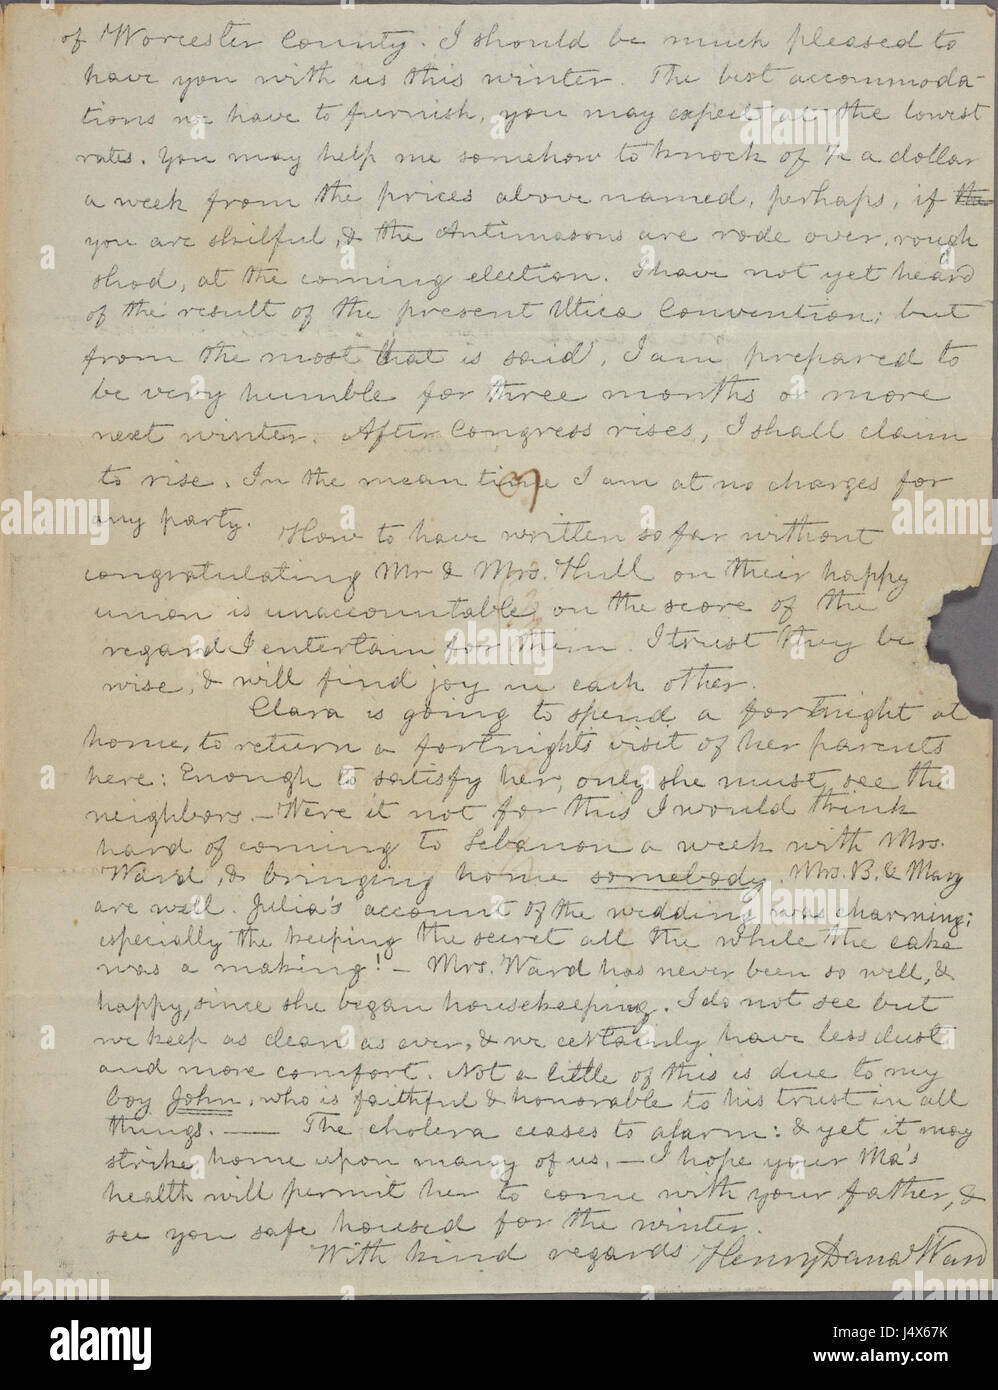 of Worcester County. I should be much pleased to
have you with us this winter. The best accommoda-
tions we have to furnish, you may expect at the lowest
rates. You may help me somehow to knock of ½ a dollar
a week from the prices above named, perhaps, if the
you are skilful, & the Antimasons are rode over, rough
shod, at the coming election. I have not yet heard
of the result of the present Utica Convention; but
from the most that is said, I am prepared to
be very humble for three months or more
next winter. After Congress rises, I shall claim
to rise. In the mean time I am at no charges for
any party.
How to have written so far without
congratulating Mr & Mrs. Hull on their happy
union is unaccountable, on the score of the
regard I entertain for them. I trust they be
wise, & will find joy in each other.
Clara is going to spend a fortnight at
home, to return a fortnight's visit of her parents
here: Enough to satisfy her, only she must see the
neighbors. – Were it not for this I would think
hard of coming to Lebanon a week with Mrs.
Ward, & bringing home somebody. Mrs. B. & Mary
are well. Julia's account of the wedding was charming;
especially the keeping the secret all the while the cake
was a making! – Mrs. Ward has never been so well, &
happy, since she began housekeeping. I do not see but
we keep as clean as ever, & we certainly have less dust
and more comfort. Not a little of this is due to my
boy John, who is faithful & honorable to his trust in all
things. — The cholera ceases to alarm: & yet it may
strike home upon many of us. – I hope your Ma's
health will permit her to come with your father, &
see you safe housed for the winter.
With kind regards Henry Dana Ward
3
alamy
Image ID: J4X67K
www.alamy.com